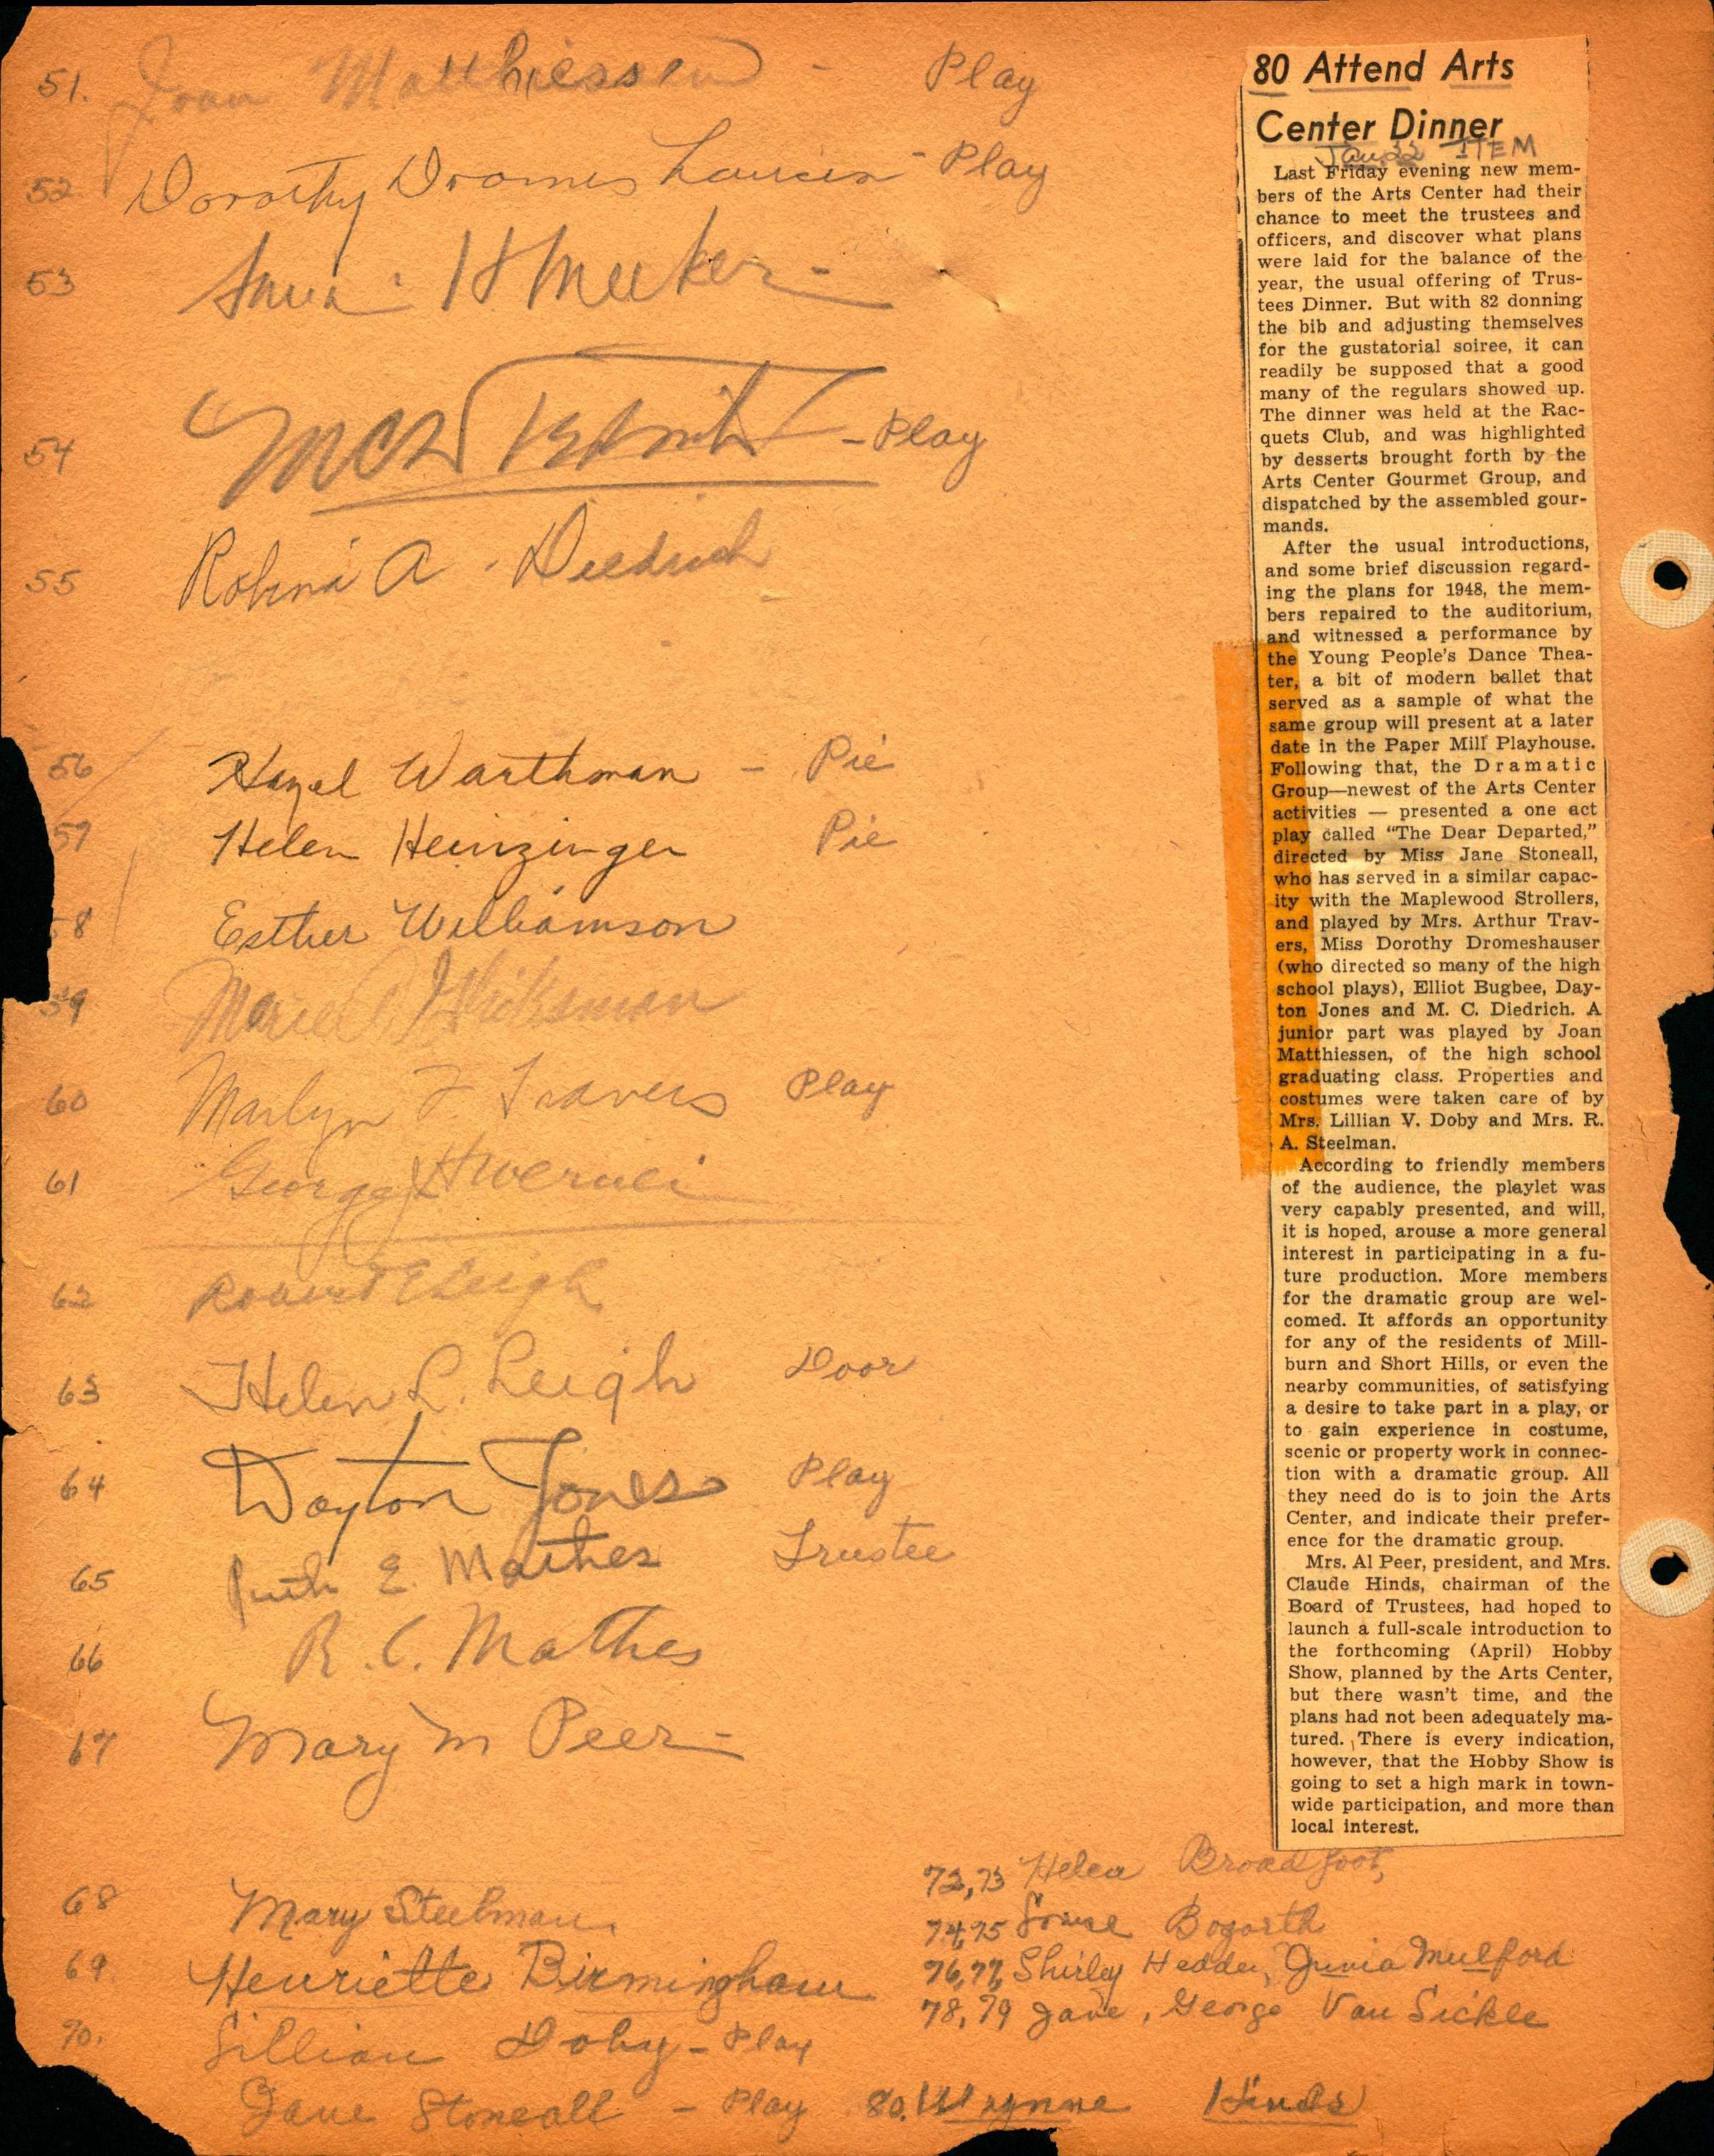 51. Joan Matthiessen - Play
52 Dorothy Dromes - Play
53 H Meeker -
54 - Play
55 A. Diedrich
56 Hazel Warthman - Pie
57 Helen Heinzinger Pie
58 Esther Williamson
59 Marie
60 Marlyn F. Travers Play
61 George
62 Robert E Leigh
63 Helen L. Leigh Door
64 Dayton Jones Play
65 Ruth E. Mathes Trustee
66 R. C. Mathes
67 Mary M Peer -
68 Mary Steelman
69. Henriette Birmingham
70. Lillian Doby - Play
Jane Stoneall - Play
72,73 Helen Broadfoot,
74,75 Bogarth
76,77, Shirley Hedden, Junia Mulford
78,79 Jane, George Van Sickle
80. Wynne Hinds
80 Attend Arts
Center Dinner
Jan 22 ITEM
Last Friday evening new mem-
bers of the Arts Center had their
chance to meet the trustees and
officers, and discover what plans
were laid for the balance of the
year, the usual offering of Trus-
tees Dinner. But with 82 donning
the bib and adjusting themselves
for the gustatorial soiree, it can
readily be supposed that a good
many of the regulars showed up.
The dinner was held at the Rac-
quets Club, and was highlighted
by desserts brought forth by the
Arts Center Gourmet Group, and
dispatched by the assembled gour-
mands.
After the usual introductions,
and some brief discussion regard-
ing the plans for 1948, the mem-
bers repaired to the auditorium,
and witnessed a performance by
the Young People's Dance Thea-
ter, a bit of modern ballet that
served as a sample of what the
same group will present at a later
date in the Paper Mill Playhouse.
Following that, the Dramatic
Group—newest of the Arts Center
activities — presented a one act
play called "The Dear Departed,"
directed by Miss Jane Stoneall,
who has served in a similar capac-
ity with the Maplewood Strollers,
and played by Mrs. Arthur Trav-
ers, Miss Dorothy Dromeshauser
(who directed so many of the high
school plays), Elliot Bugbee, Day-
ton Jones and M. C. Diedrich. A
junior part was played by Joan
Matthiessen, of the high school
graduating class. Properties and
costumes were taken care of by
Mrs. Lillian V. Doby and Mrs. R.
A. Steelman.
According to friendly members
of the audience, the playlet was
very capably presented, and will,
it is hoped, arouse a more general
interest in participating in a fu-
ture production. More members
for the dramatic group are wel-
comed. It affords an opportunity
for any of the residents of Mill-
burn and Short Hills, or even the
nearby communities, of satisfying
a desire to take part in a play, or
to gain experience in costume,
scenic or property work in connec-
tion with a dramatic group. All
they need do is to join the Arts
Center, and indicate their prefer-
ence for the dramatic group.
Mrs. Al Peer, president, and Mrs.
Claude Hinds, chairman of the
Board of Trustees, had hoped to
launch a full-scale introduction to
the forthcoming (April) Hobby
Show, planned by the Arts Center,
but there wasn't time, and the
plans had not been adequately ma-
tured. There is every indication,
however, that the Hobby Show is
going to set a high mark in town-
wide participation, and more than
local interest.